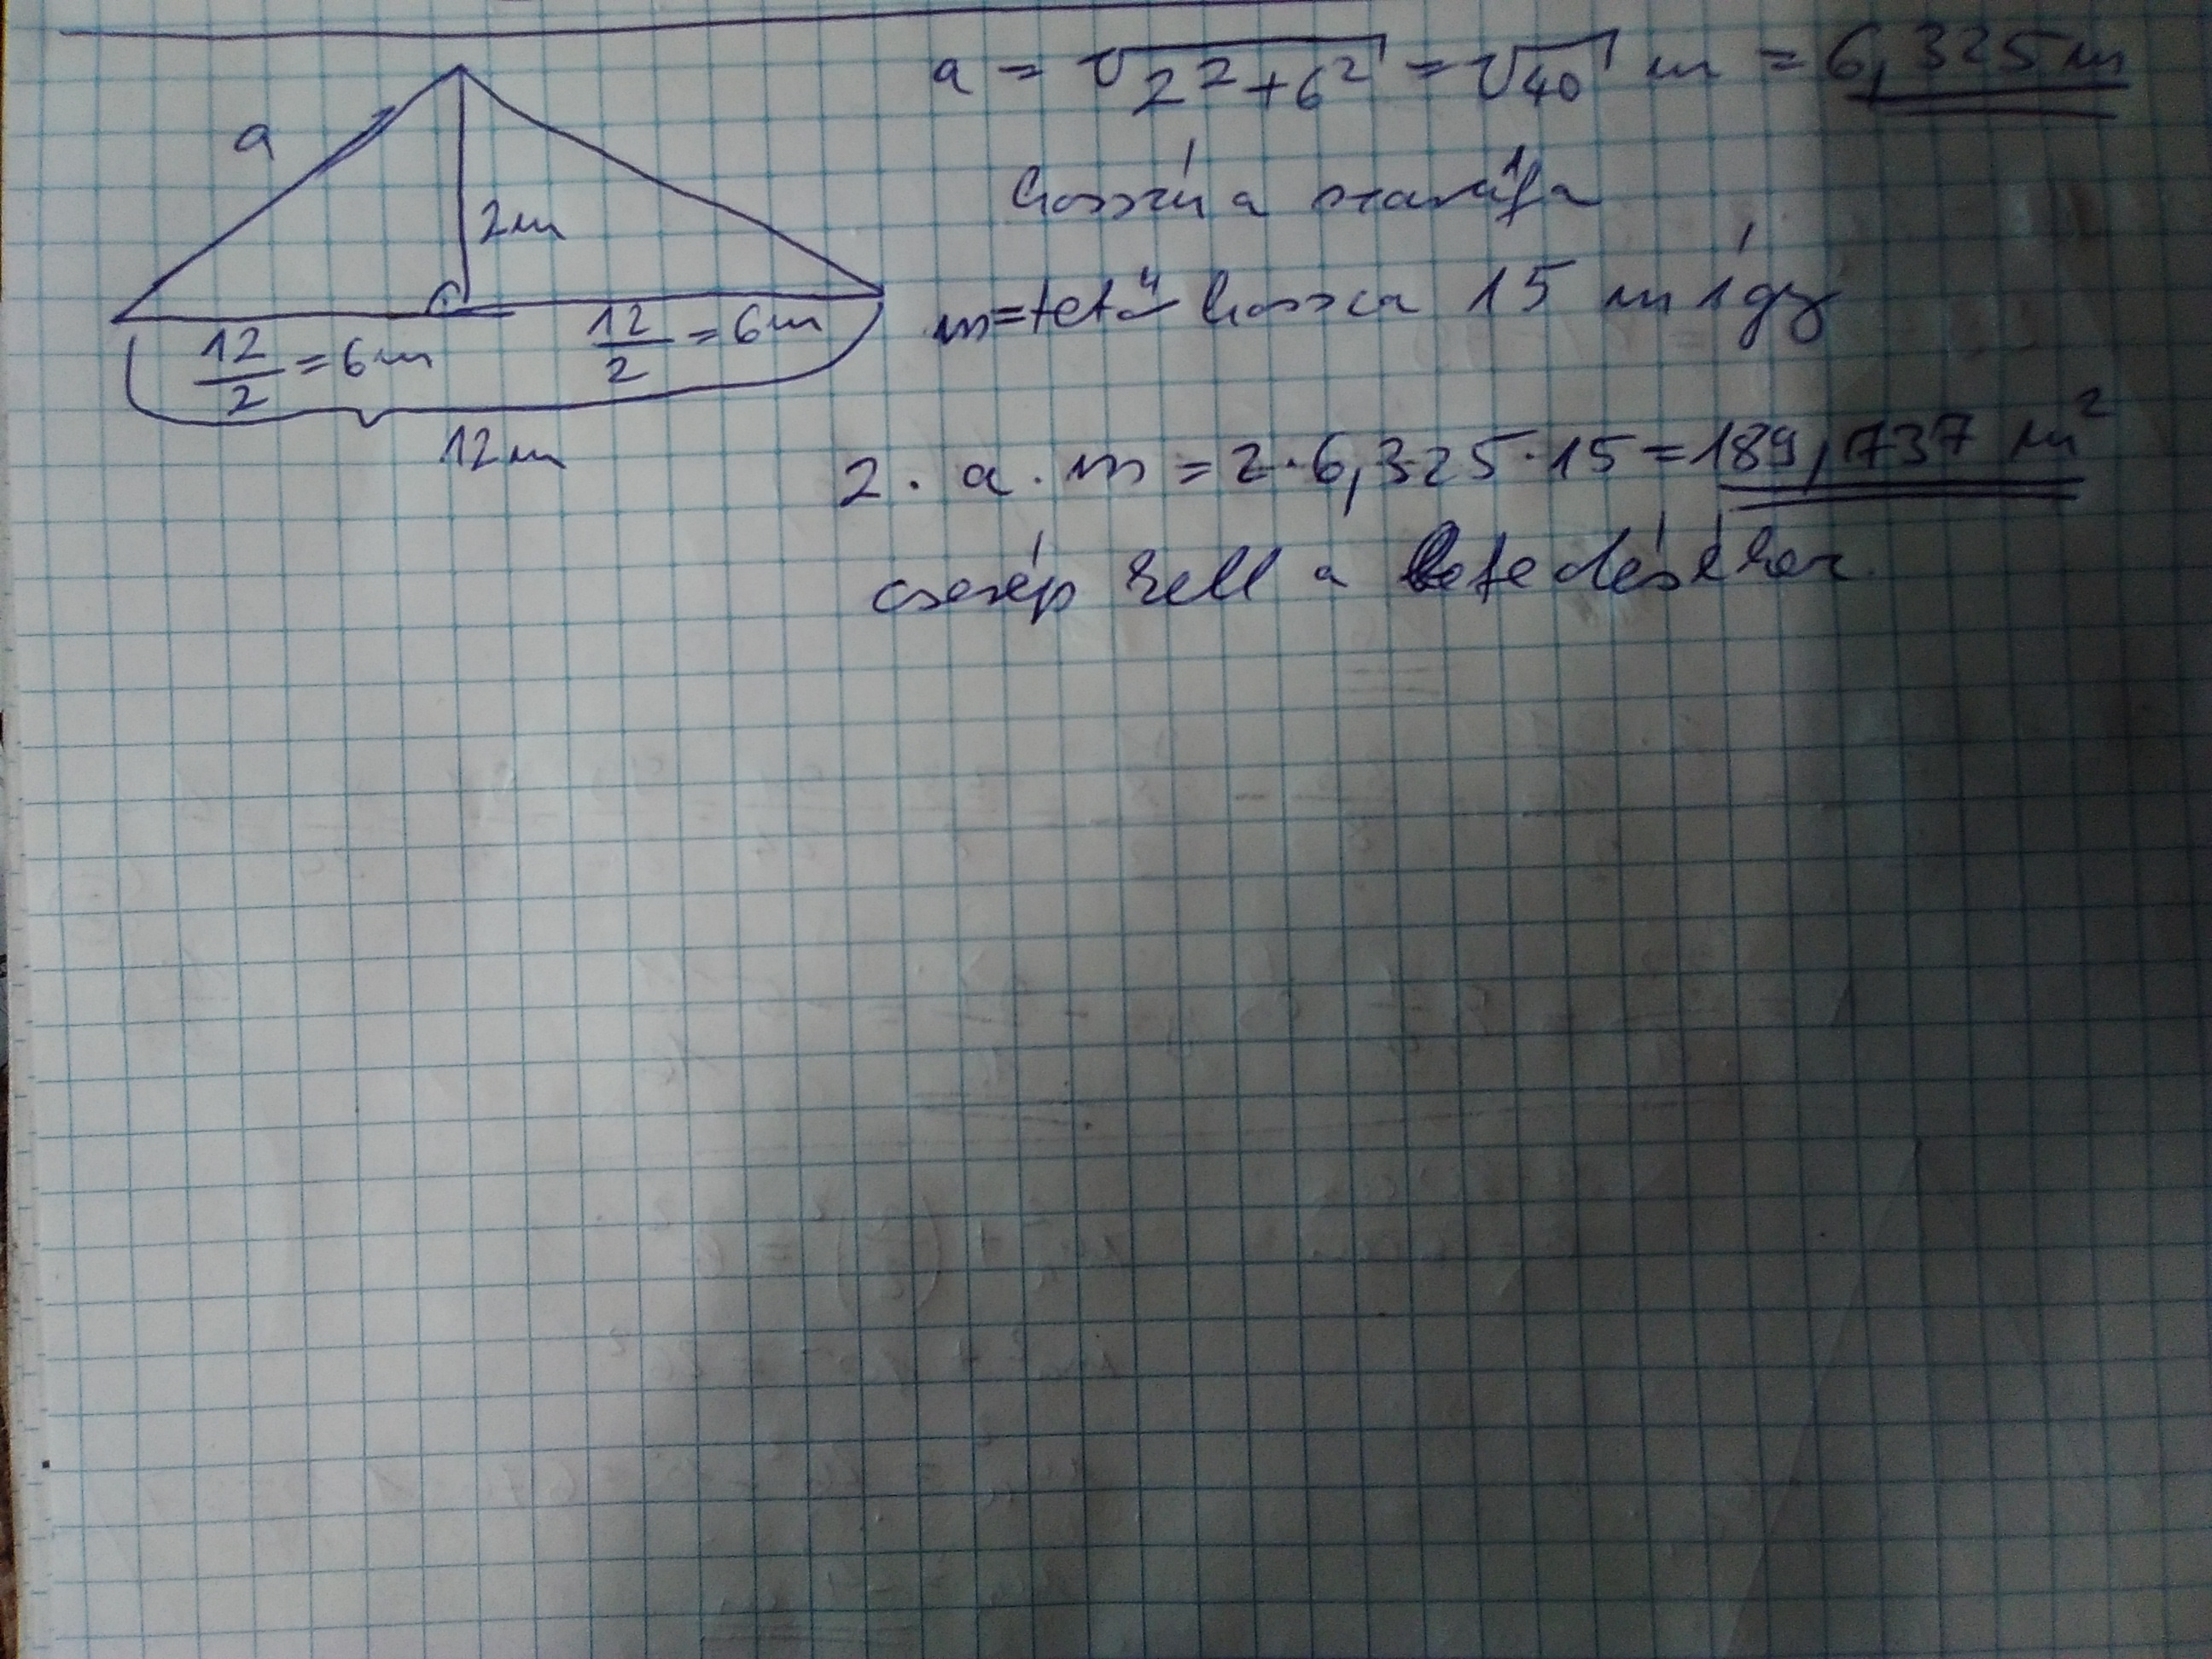 a
2m
12/2 = 6m
12/2 = 6m
12m
a = √(2²+6²) = √40 m = 6,325 m
hosszú a szarufa
m = tető hossza 15 m így
2 · a · m = 2 · 6,325 · 15 = 189,737 m²
cserép kell a lefedéséhez.